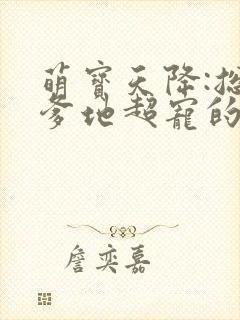 萌寶天降:總
爹地超寵的
詹奕嘉